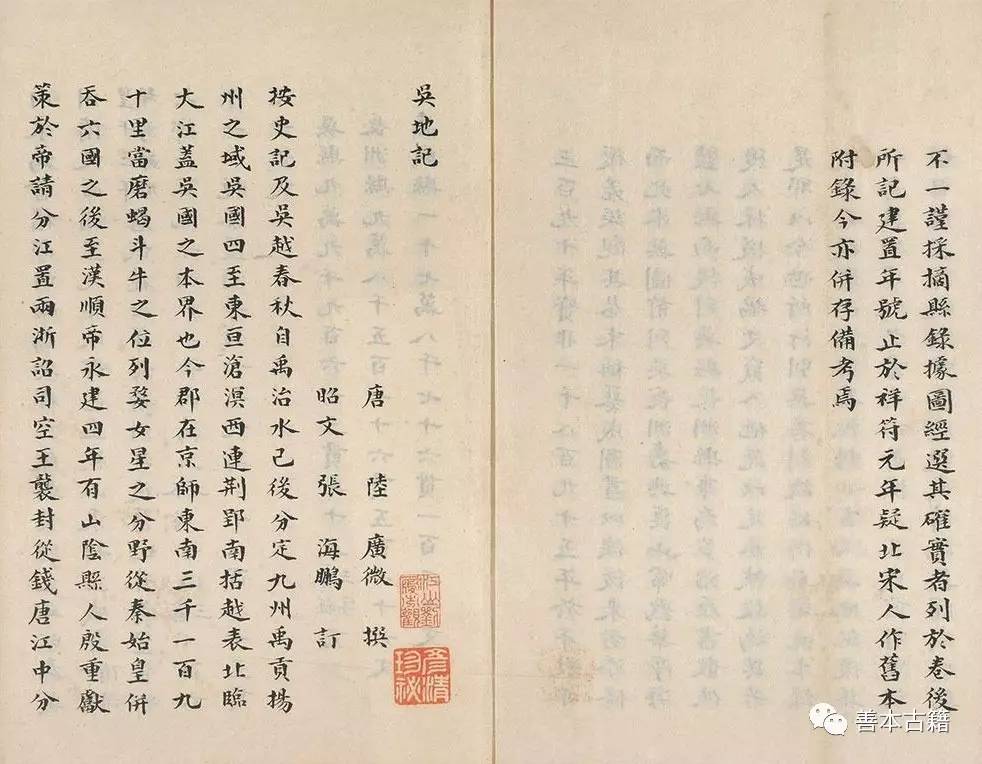 不一謹採摘縣錄據圖經選其確實者列於卷後
所記建置年號止於祥符元年疑北宋人作舊本
附錄今亦併存備考焉
吳地記
唐 陸廣微 撰
昭文張海鵬 訂
按史記及吳越春秋自禹治水已後分定九州禹貢揚
州之域吳國四至東亘滄溟西連荆郢南括越表北臨
大江蓋吳國之本界也今郡在京師東南三千一百九
十里當磨蝎斗牛之位列婺女星之分野從秦始皇併
吞六國之後至漢順帝永建四年有山陰縣人殷重獻
策於帝請分江置兩浙詔司空王襲封從錢唐江中分
善本古籍